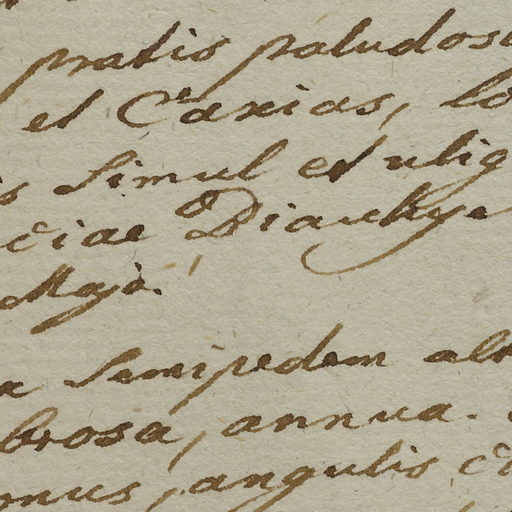 pratis paludos
et Carias, lo
is simul et ulig
ciae Diauky
Maji.
a semipedem alt
brosa, annua.
onus, angulis